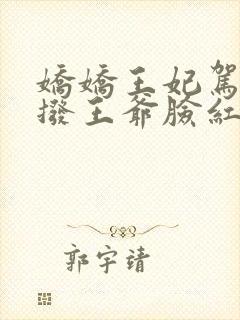 嬌嬌王妃駕
撥王爺臉紅
郭宇靖